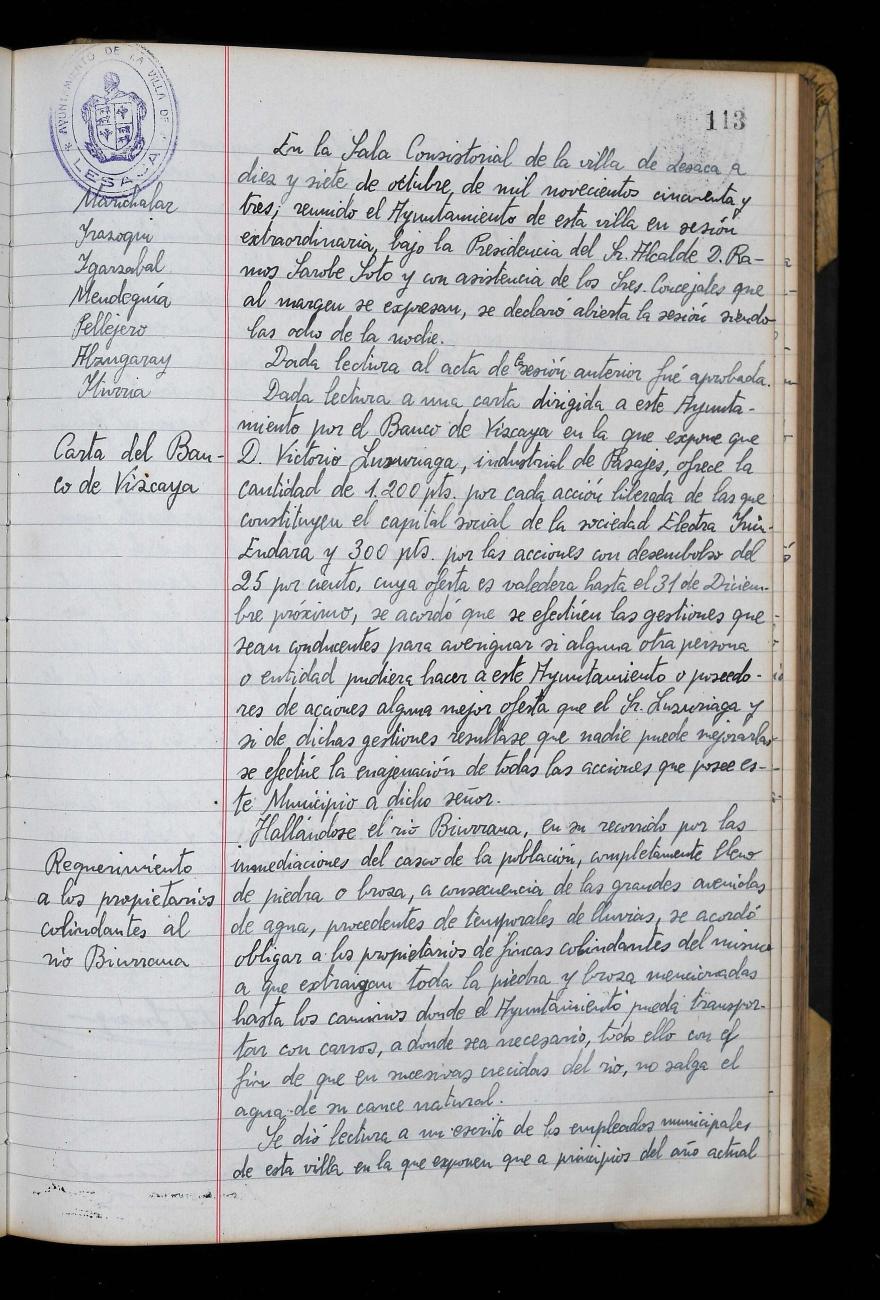 113
AYUNTAMIENTO DE LA VILLA DE
LESACA
Marichalar
Irazoqui
Igarzabal
Mendeguía
Pellejero
Alzugaray
Iturria
En la Sala Consistorial de la villa de Lesaca a
diez y siete de octubre, de mil novecientos cincuenta y
tres; reunido el Ayuntamiento de esta villa en sesión
extraordinaria, bajo la Presidencia del Sr. Alcalde D. Ra-
mos Sarobe Soto y con asistencia de los Sres. Concejales que
al margen se expresan, se declaró abierta la sesión siendo
las ocho de la noche.
Dada lectura al acta de la sesión anterior fué aprobada.
Carta del Ban-
co de Vizcaya
Dada lectura a una carta dirigida a este Ayunta-
miento por el Banco de Vizcaya en la que expone que
D. Victorio Luzuriaga, industrial de Pasajes, ofrece la
cantidad de 1.200 pts. por cada acción liberada de las que
constituyen el capital social de la sociedad Electra Irún-
Endara y 300 pts. por las acciones con desembolso del
25 por ciento, cuya oferta es valedera hasta el 31 de Diciem-
bre próximo, se acordó que se efectúen las gestiones que
sean conducentes para averiguar si alguna otra persona
o entidad pudiera hacer a este Ayuntamiento o poseedo-
res de acciones alguna mejor oferta que el Sr. Luzuriaga y
si de dichas gestiones resultase que nadie puede mejorarlas
se efectúe la enajenación de todas las acciones que posee es-
te Municipio a dicho señor.
Requerimiento
a los propietarios
colindantes al
río Biurrana
Hallándose el río Biurrana, en su recorrido por las
inmediaciones del casco de la población, completamente lleno
de piedra o broza, a consecuencia de las grandes avenidas
de agua, procedentes de temporales de lluvias, se acordó
obligar a los propietarios de fincas colindantes del mismo
a que extraigan toda la piedra y broza mencionadas
hasta los caminos donde el Ayuntamiento pueda transpor-
tar con carros, a donde sea necesario, todo ello con el
fin de que en sucesivas crecidas del río, no salga el
agua de su cauce natural.
Se dió lectura a un escrito de los empleados municipales
de esta villa en la que exponen que a principios del año actual